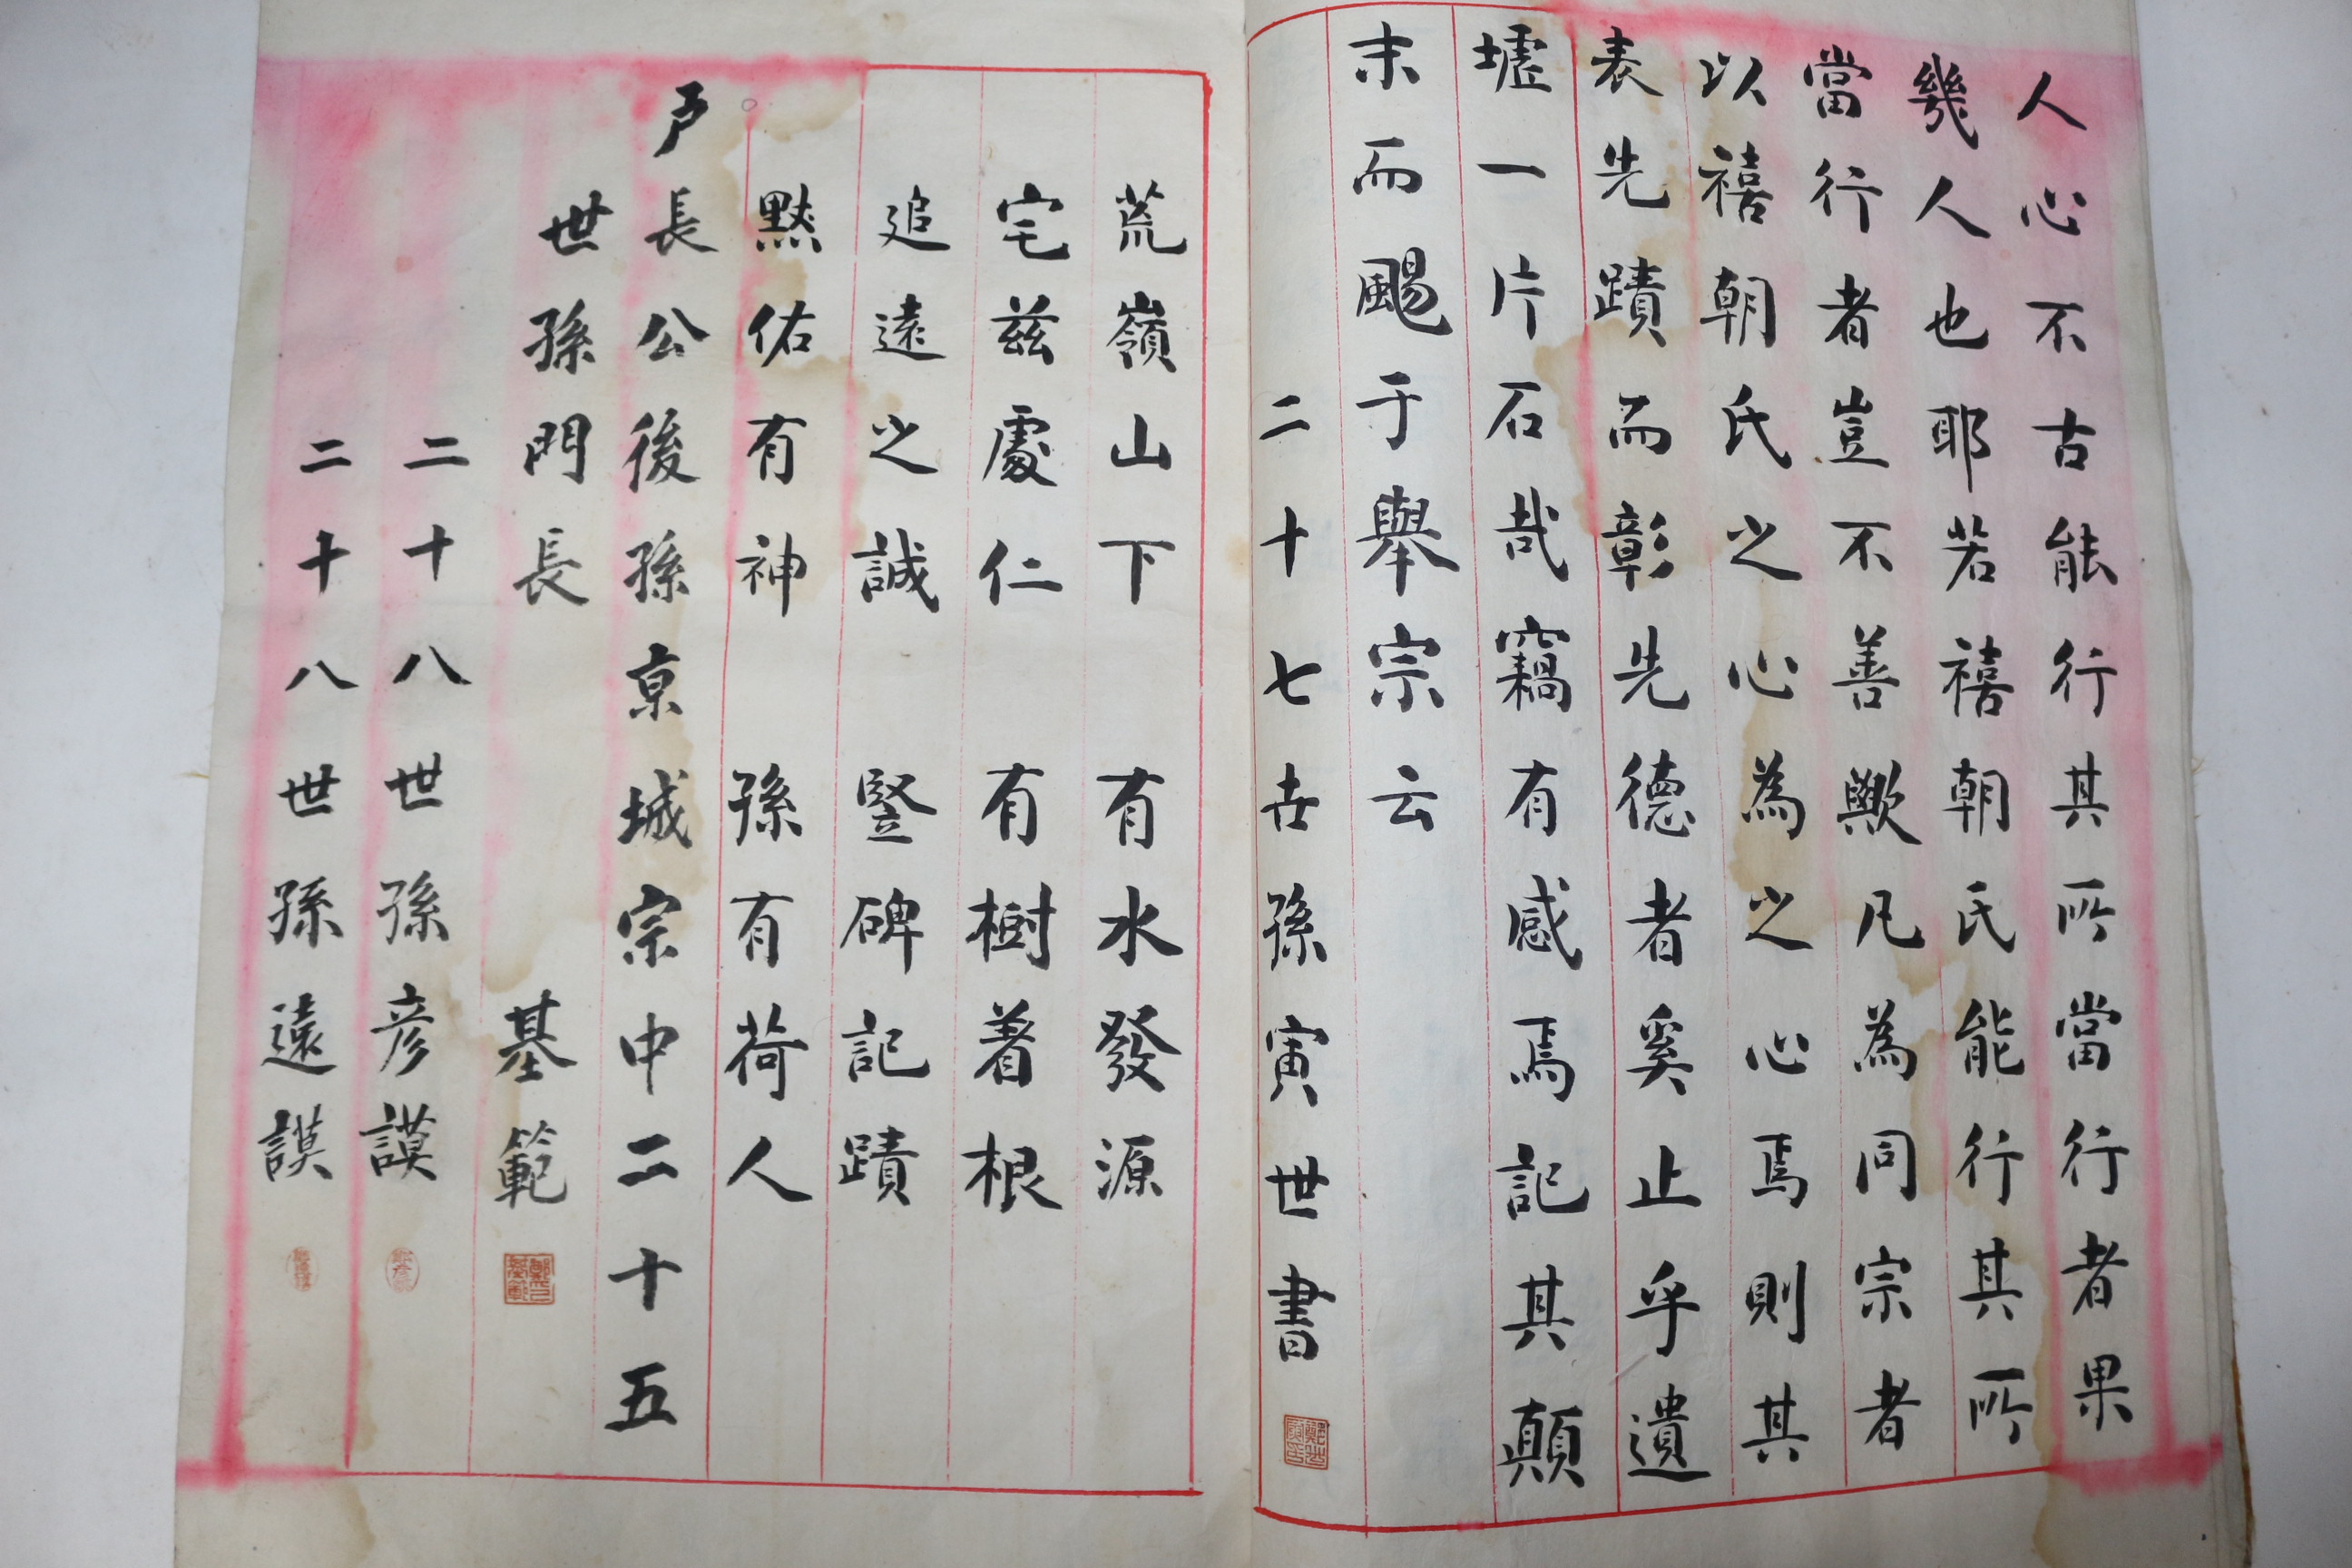 人心不古能行其所當行者果
幾人也耶若禧朝氏能行其所
當行者豈不善歟凡為同宗者
以禧朝氏之心為之心焉則其
表先蹟而彰先德者奚止乎遺
墟一片石哉竊有感焉記其顛
末而颺于舉宗云
二十七世孫寅世書
荒嶺山下 有水發源
宅玆處仁 有樹着根
追遠之誠 竪碑記蹟
黙佑有神 孫有荷人
戶長公後孫京城宗中二十五
世孫門長 基範
二十八世孫彦謨
二十八世孫遠謨